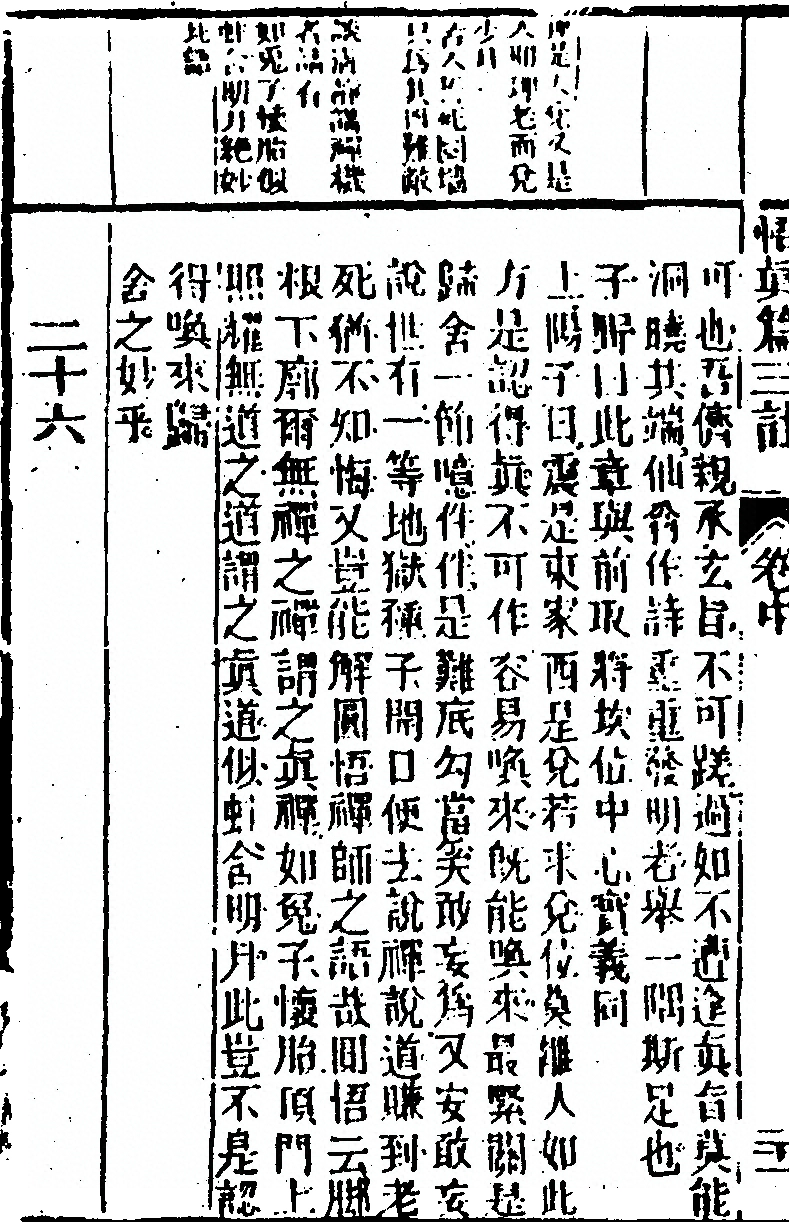 悟真篇三註
卷中
可也吾儕親承玄旨不可蹉過如不遭逢真旨莫能
洞曉其端仙翁作詩重重發明老舉一隅斯足也
子野曰此章與前取將坎位中心實義同
上陽子曰震是東家西是兌若求兌位莫離人如此
方是認得真不可作容易喚來既能喚來最緊關是
歸舍一節噫件件是難底勾當矣敢妄為又安敢妄
說世有一等地獄種子開口便去說禪說道賺到老
死猶不知悔又豈能解圓悟禪師之語哉圓悟云腳
根下廓爾無禪之禪謂之真禪如兔子懷胎頂門上
照耀無道之道謂之真道似蚌含明月此豈不是認
得喚來歸
舍之妙乎
二十六
說清部講禪機
者請有
如兔子懷胎似
蚌含明月絕妙